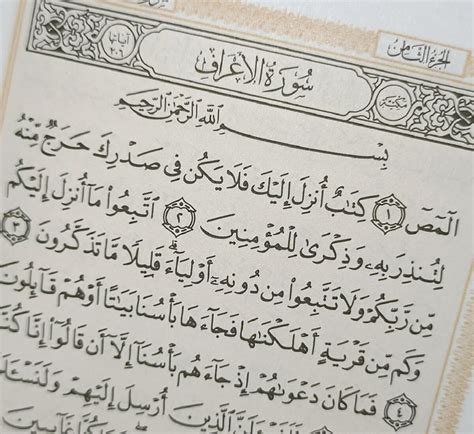 الجزء الثامن
سورة الأعراف
مكية
آياتها
٢٠٦
بِسْمِ ٱللَّهِ ٱلرَّحْمَٰنِ ٱلرَّحِيمِ
الٓمٓصٓ ١ كِتَٰبٌ أُنزِلَ إِلَيْكَ فَلَا يَكُن فِى صَدْرِكَ حَرَجٌ مِّنْهُ
لِتُنذِرَ بِهِۦ وَذِكْرَىٰ لِلْمُؤْمِنِينَ ٢ ٱتَّبِعُوا۟ مَآ أُنزِلَ إِلَيْكُم
مِّن رَّبِّكُمْ وَلَا تَتَّبِعُوا۟ مِن دُونِهِۦٓ أَوْلِيَآءَ ۗ قَلِيلًا مَّا تَذَكَّرُونَ ٣
وَكَم مِّن قَرْيَةٍ أَهْلَكْنَٰهَا فَجَآءَهَا بَأْسُنَا بَيَٰتًا أَوْ هُمْ قَآئِلُونَ
٤ فَمَا كَانَ دَعْوَىٰهُمْ إِذْ جَآءَهُم بَأْسُنَآ إِلَّآ أَن قَالُوٓا۟ إِنَّا كُنَّا
ٱلَّذِينَ أُرْسِلَ إِلَيْهِمْ وَلَنَسْـَٔلَ